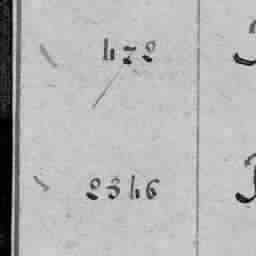 472
2346